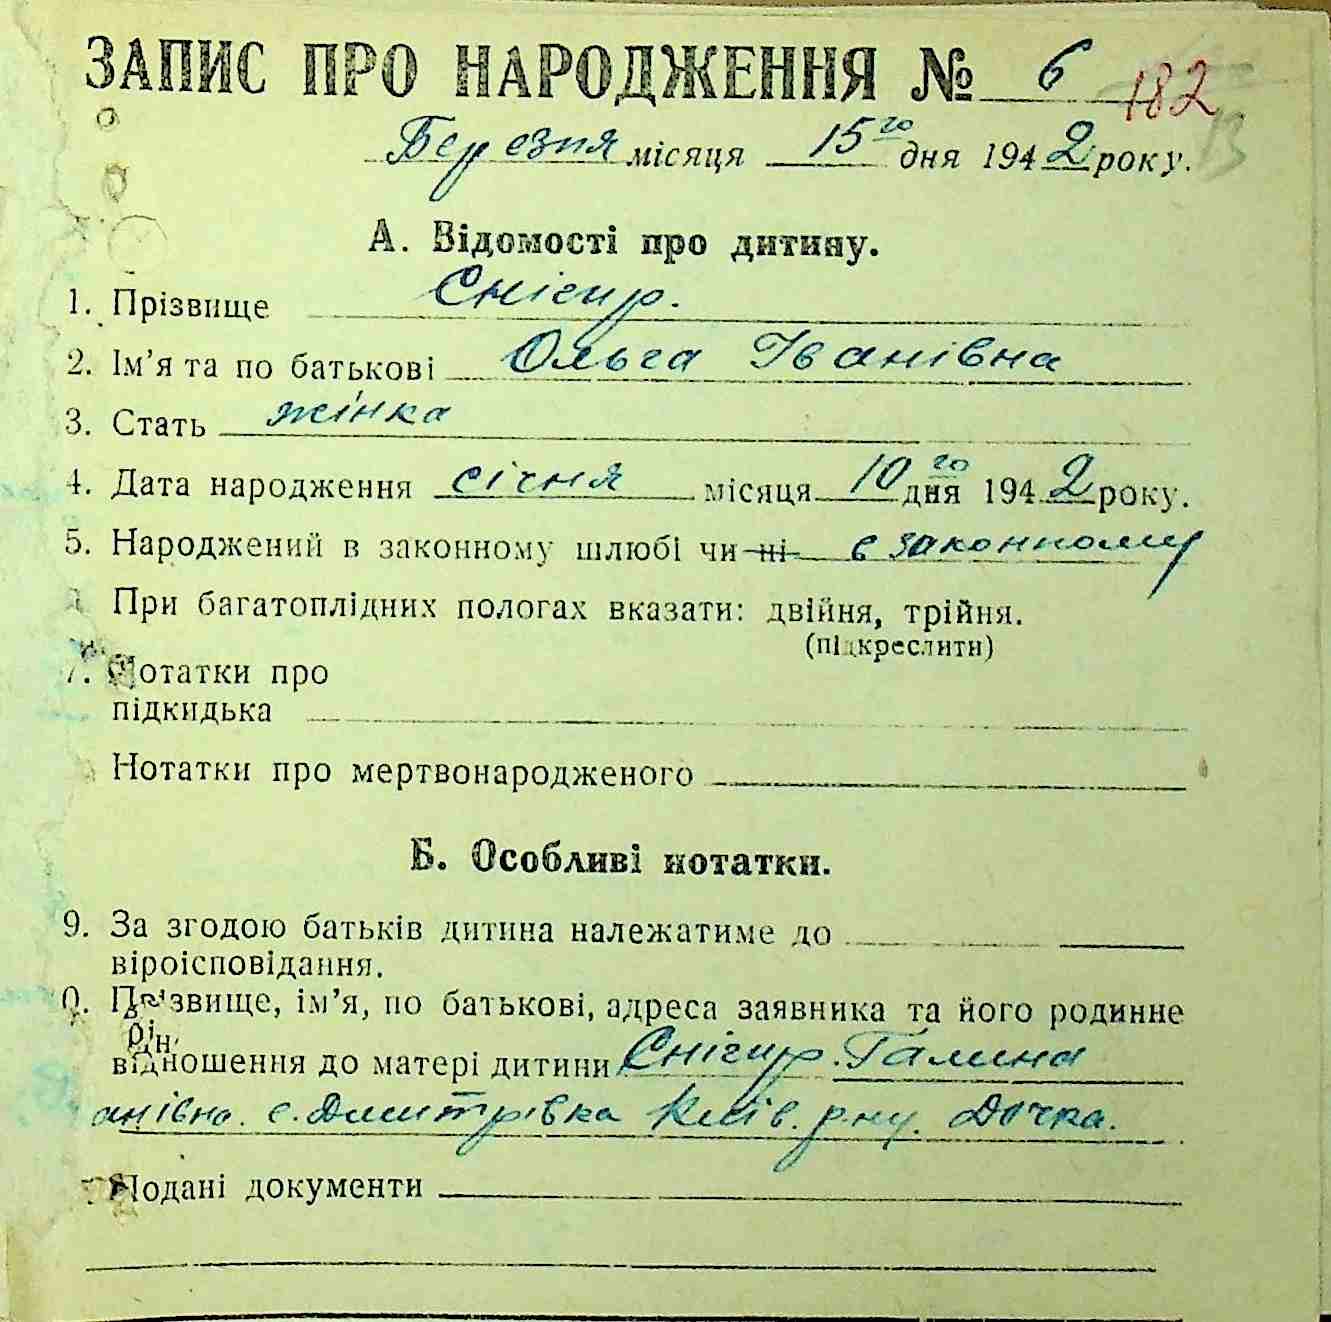 ЗАПИС ПРО НАРОДЖЕННЯ № 6 182
13
Березня місяця 15го дня 1942 року.
А. Відомості про дитину.
1. Прізвище Снігир.
2. Ім'я та по батькові Ольга Іванівна
3. Стать жінка
4. Дата народження січня місяця 10го дня 1942 року.
5. Народжений в законному шлюбі чи ні в законному
При багатоплідних пологах вказати: двійня, трійня.
(підкреслити)
7. Нотатки про
підкидька
Нотатки про мертвонародженого
Б. Особливі нотатки.
9. За згодою батьків дитина належатиме до
віроісповідання.
0. Прізвище, ім'я, по батькові, адреса заявника та його родинне
відношення до матері дитини Снігир Галина
анівна. с. Дмитрівка Київ. р-ну. Дочка.
Подані документи